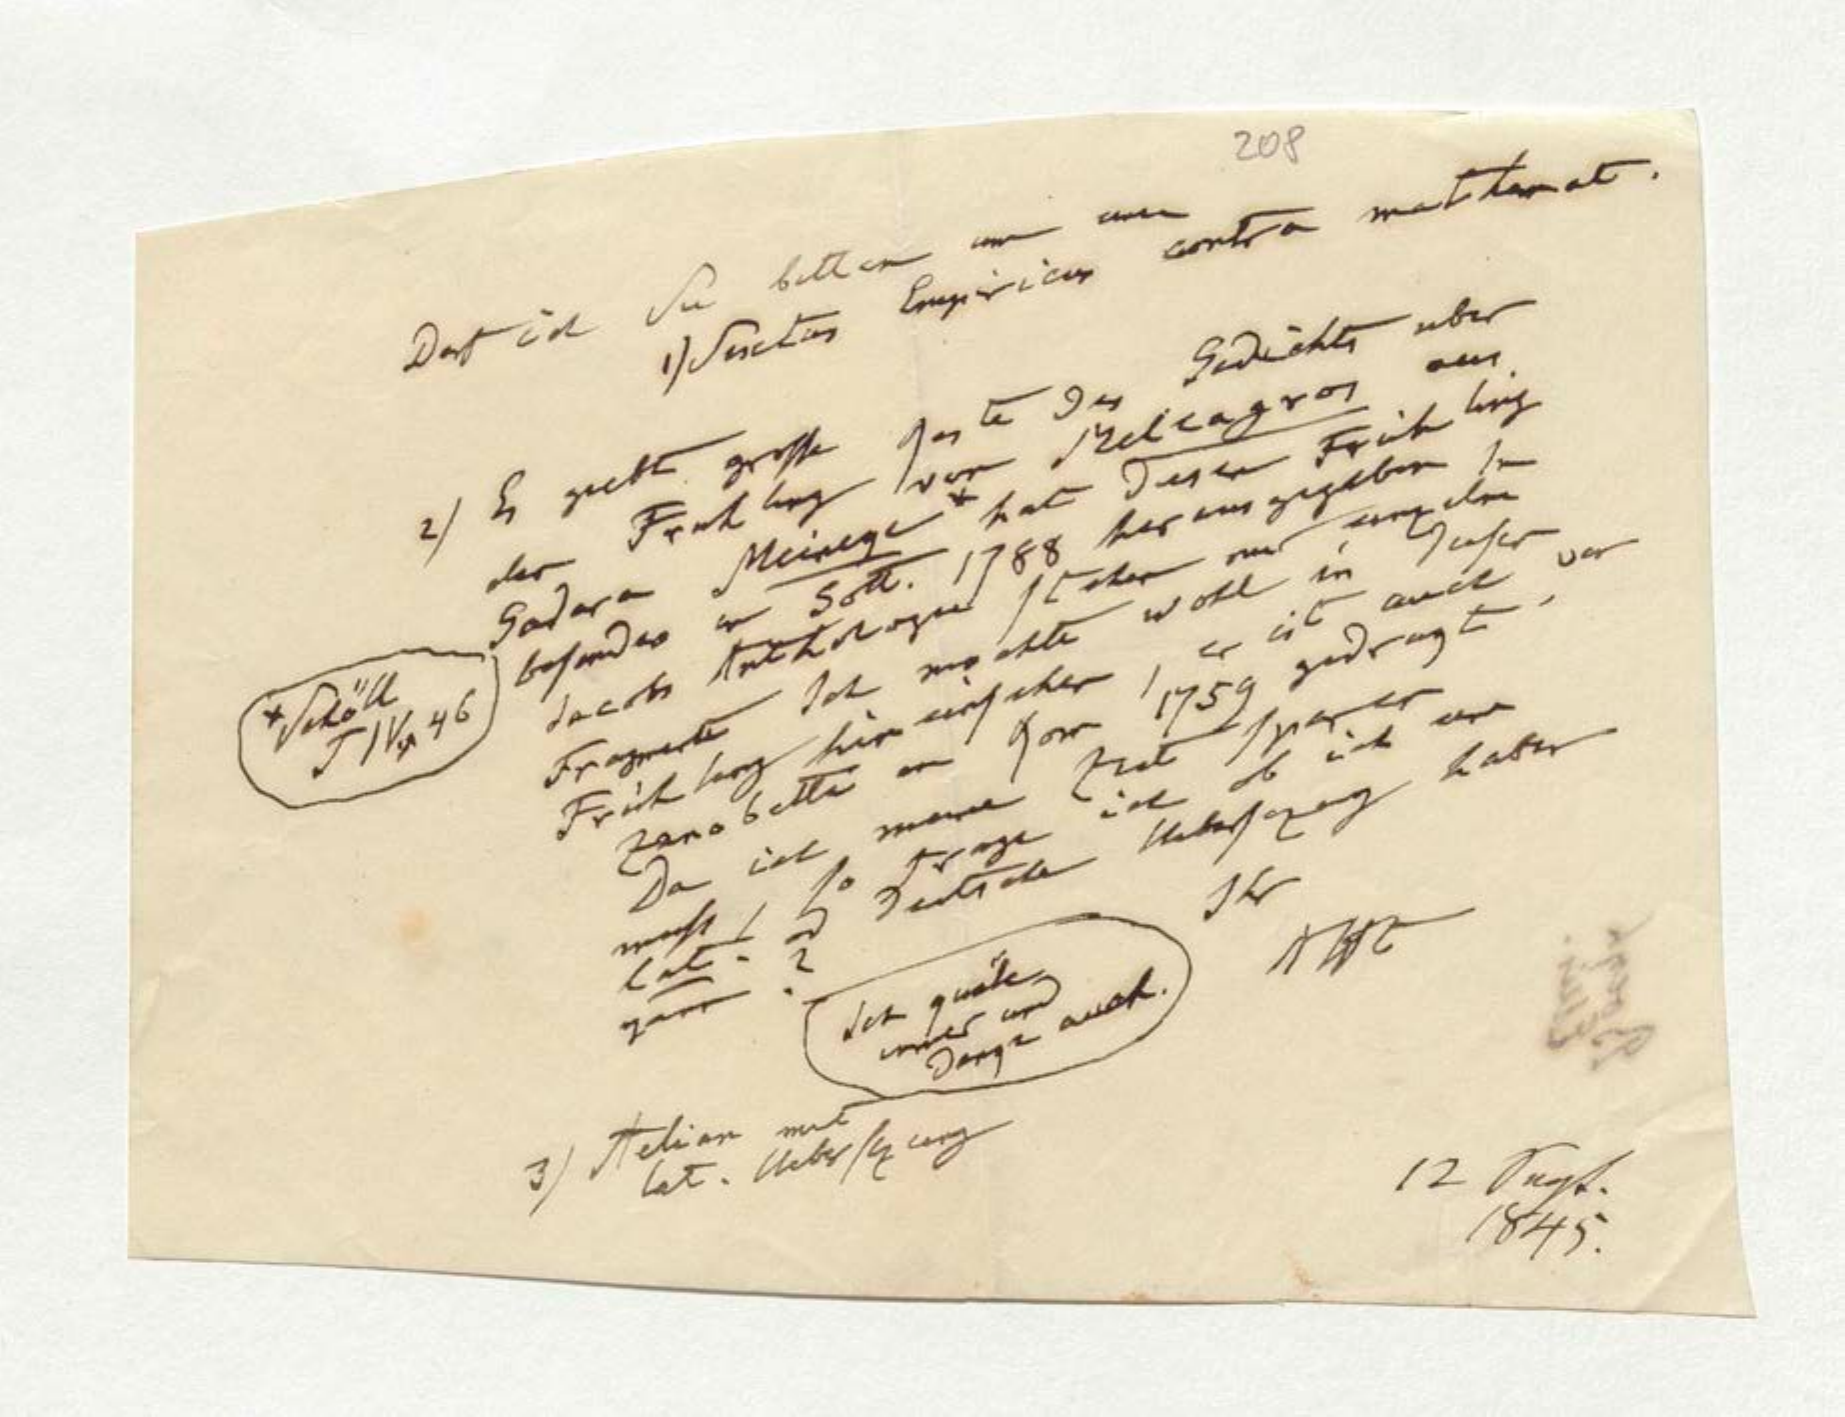 208
Darf ich Sie bitten um
1) Sextus Empiricus contra mathemat.
2) Es giebt grosse Reste des Gedichts uber
den Fruhling von Meleagros aus
Gadara Meinege* hat diesen Fruhling
besonders in Gött. 1788 herausgegeben In
Jacobs Anthologie stehen nur einzelne
Fragmente Ich mochte wohl in diesen
Fruhling hineinsehen, er ist auch von
Zenobetti in Rom 1759 gedragt,
Da ich meine Zeit sparen
muss, so frage ich ob ich eine
lat. od deutsche Uebersezung haben
gann ?
*Schöll
T IV, 46
Ihr
AHt
Ich quäle
immer und
dange auch.
3) Aelian mit
lat. Uebersezung
12 Sugt.
1845.